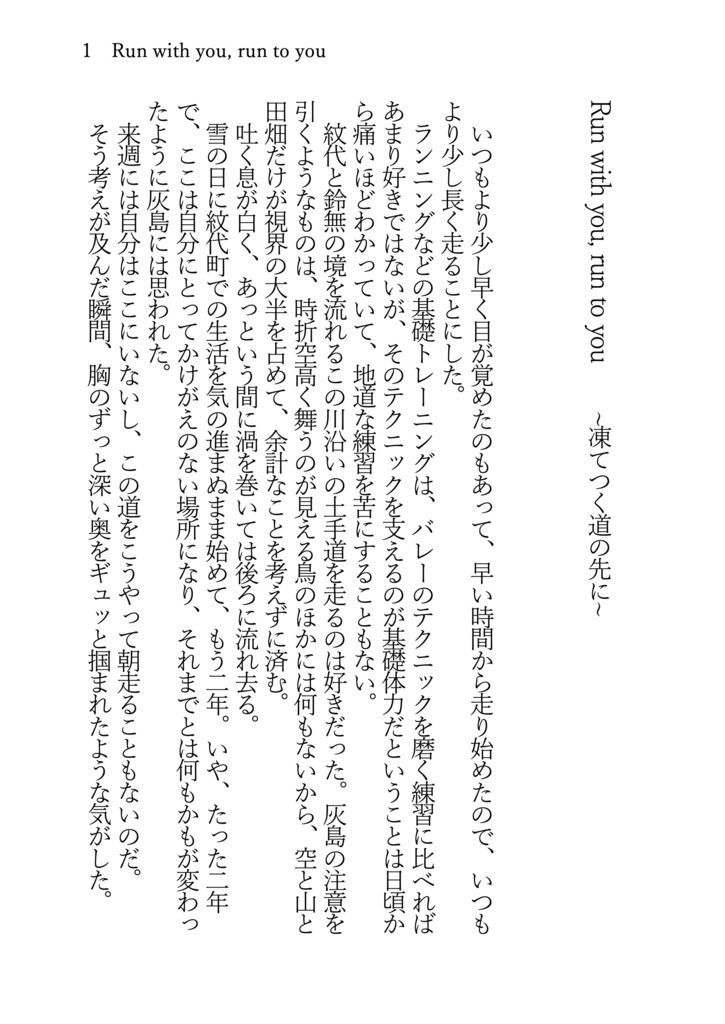 1 Run with you, run to you
Run with you, run to you ~凍てつく道の先に~
いつもより少し早く目が覚めたのもあって、早い時間から走り始めたので、いつも
より少し長く走ることにした。
ランニングなどの基礎トレーニングは、バレーのテクニックを磨く練習に比べれば
あまり好きではないが、そのテクニックを支えるのが基礎体力だということは日頃か
ら痛いほどわかっていて、地道な練習を苦にすることもない。
紋代と鈴無の境を流れるこの川沿いの土手道を走るのは好きだった。灰島の注意を
引くようなものは、時折空高く舞うのが見える鳥のほかには何もないから、空と山と
田畑だけが視界の大半を占めて、余計なことを考えずに済む。
吐く息が白く、あっという間に渦を巻いては後ろに流れ去る。
雪の日に紋代町での生活を気の進まぬまま始めて、もう二年。いや、たった二年
で、ここは自分にとってかけがえのない場所になり、それまでとは何もかもが変わっ
たように灰島には思われた。
来週には自分はここにいないし、この道をこうやって朝走ることもないのだ。
そう考えが及んだ瞬間、胸のずっと深い奥をギュッと掴まれたような気がした。